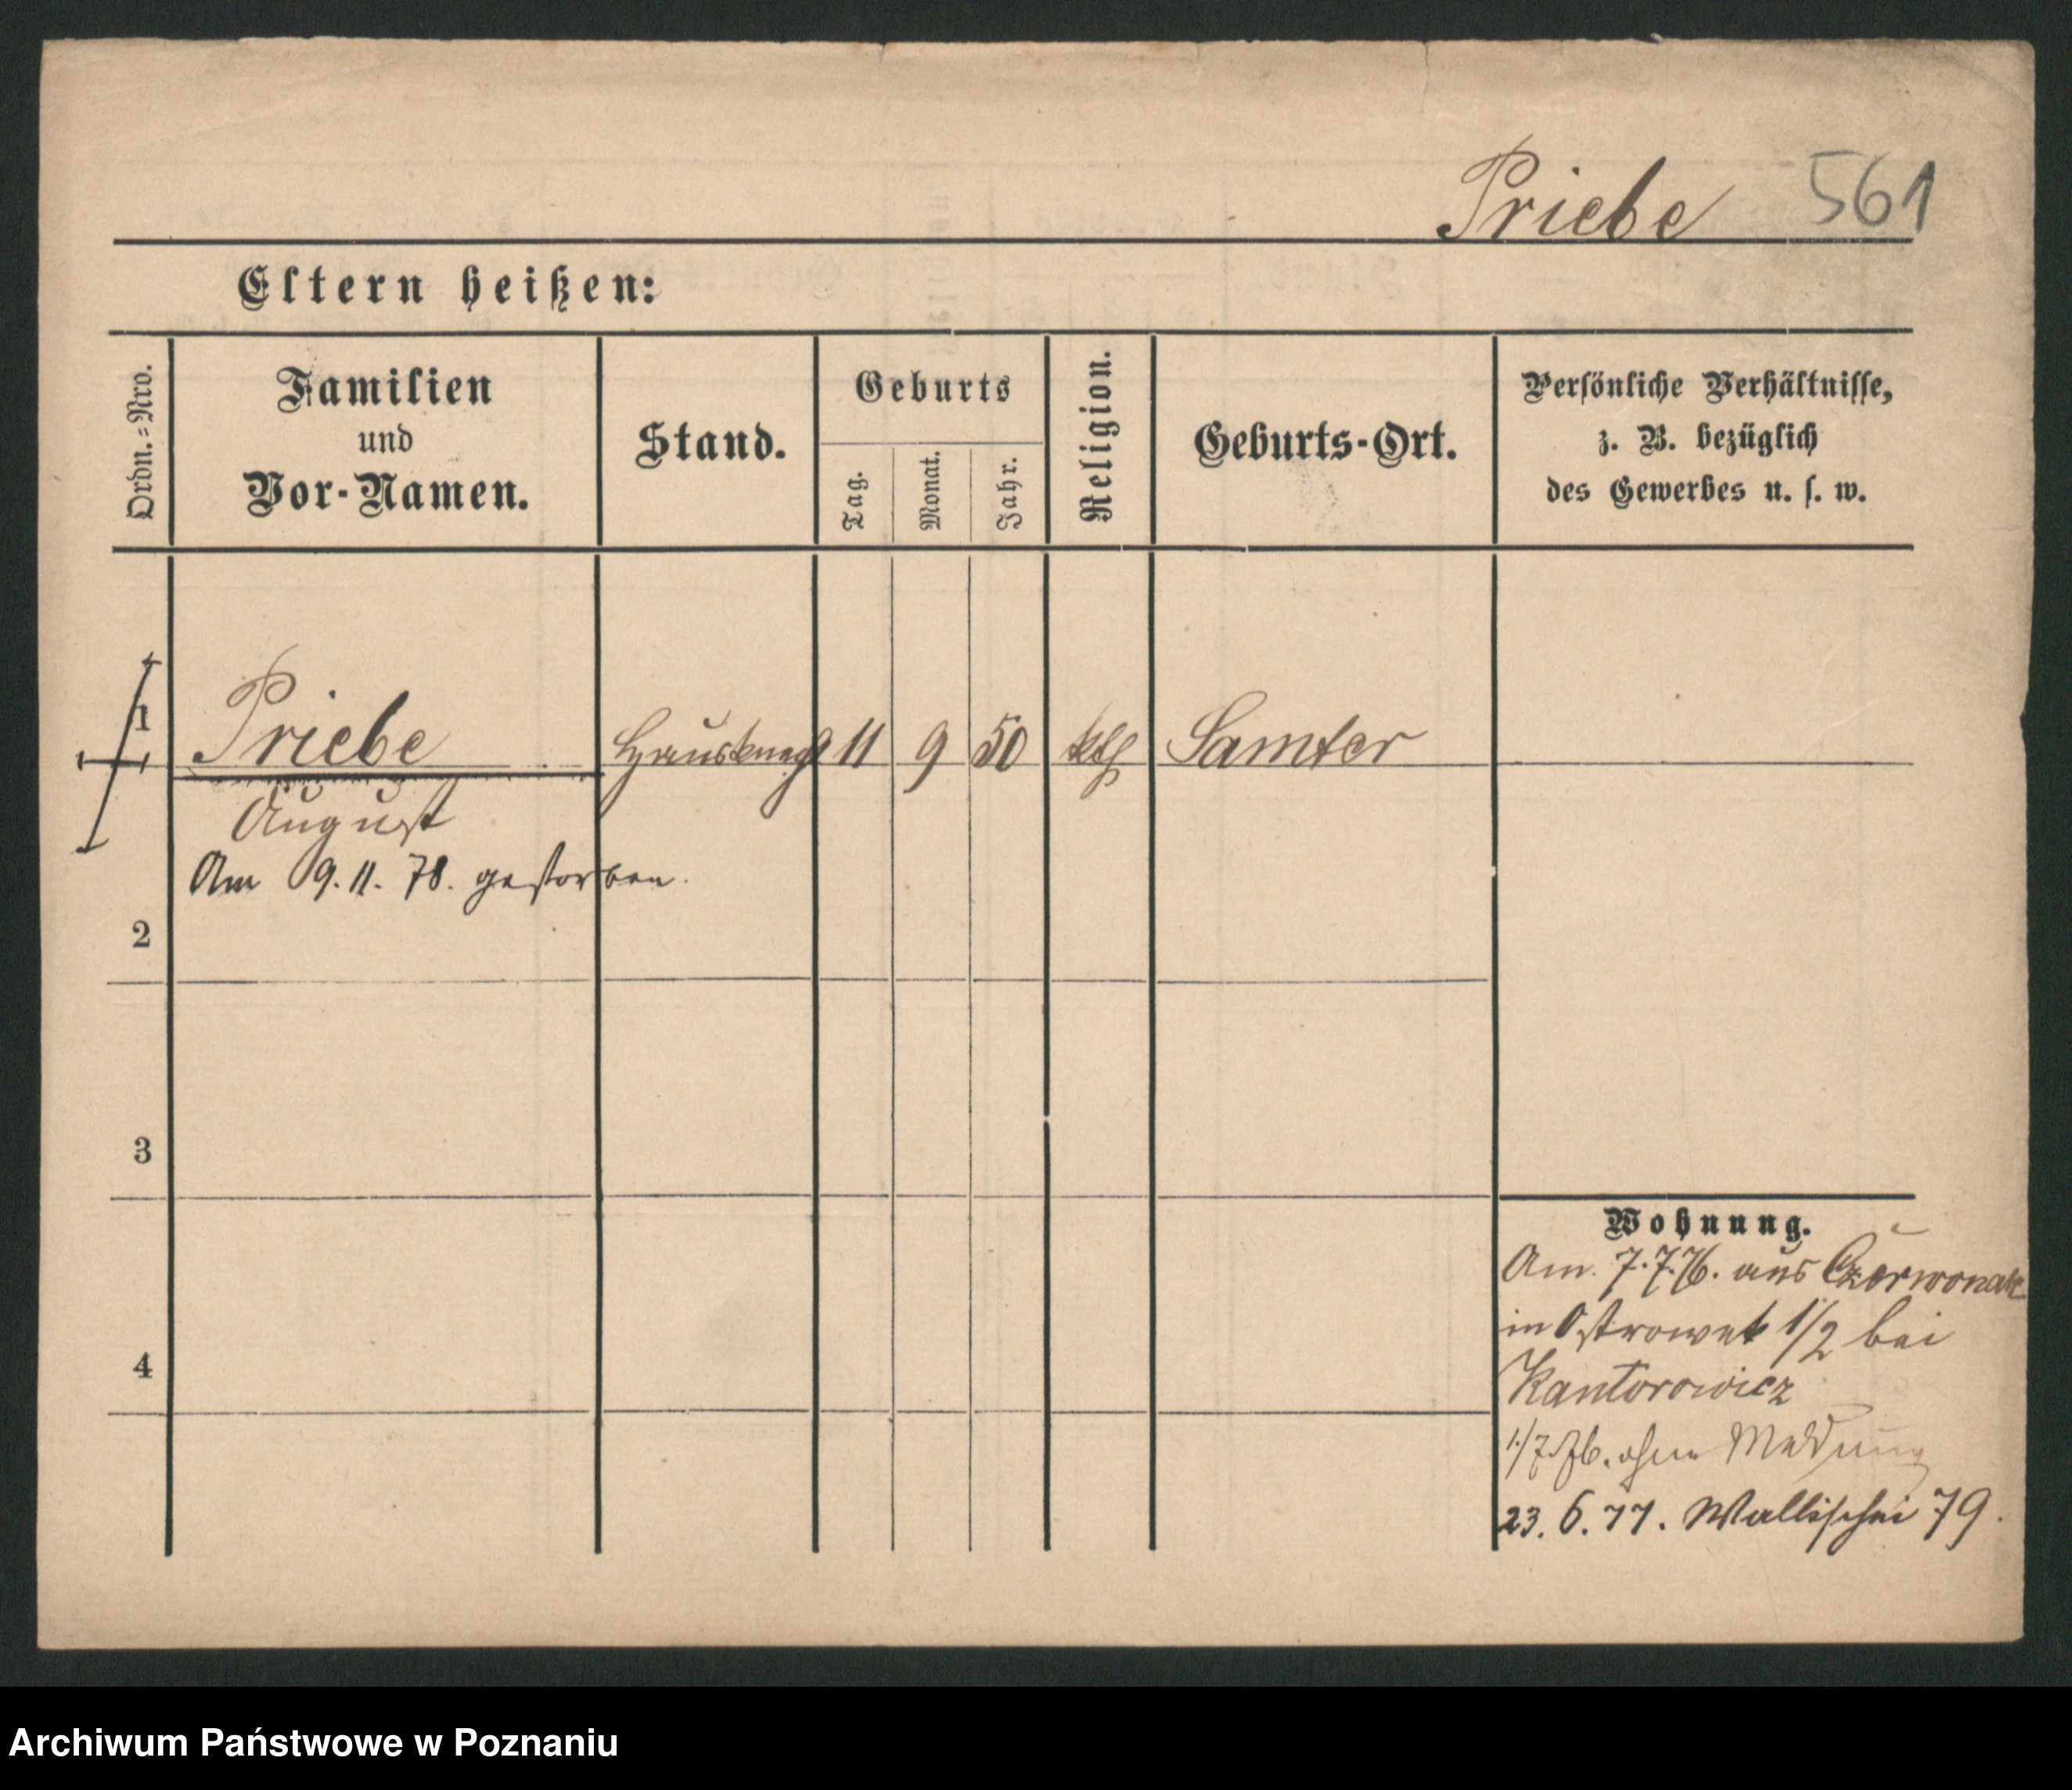 Priebe 561
Eltern heißen:
Ordn.=Nro.
Familien
und
Vor-Namen.
Stand.
Geburts
Tag.
Monat.
Jahr.
Religion.
Geburts-Ort.
Persönliche Verhältnisse,
z. B. bezüglich
des Gewerbes u. s. w.
1 Priebe Hausknecht 11 9 50 kth Samter
August
Am 9. 11. 78. gestorben.
2
3
4
Wohnung.
Am 7.7.76. aus Czerwonak
in Ostrowek 1/2 bei
Kantorowicz
ohne Meldung
23. 6. 77. Wallischei 79.
Archiwum Państwowe w Poznaniu